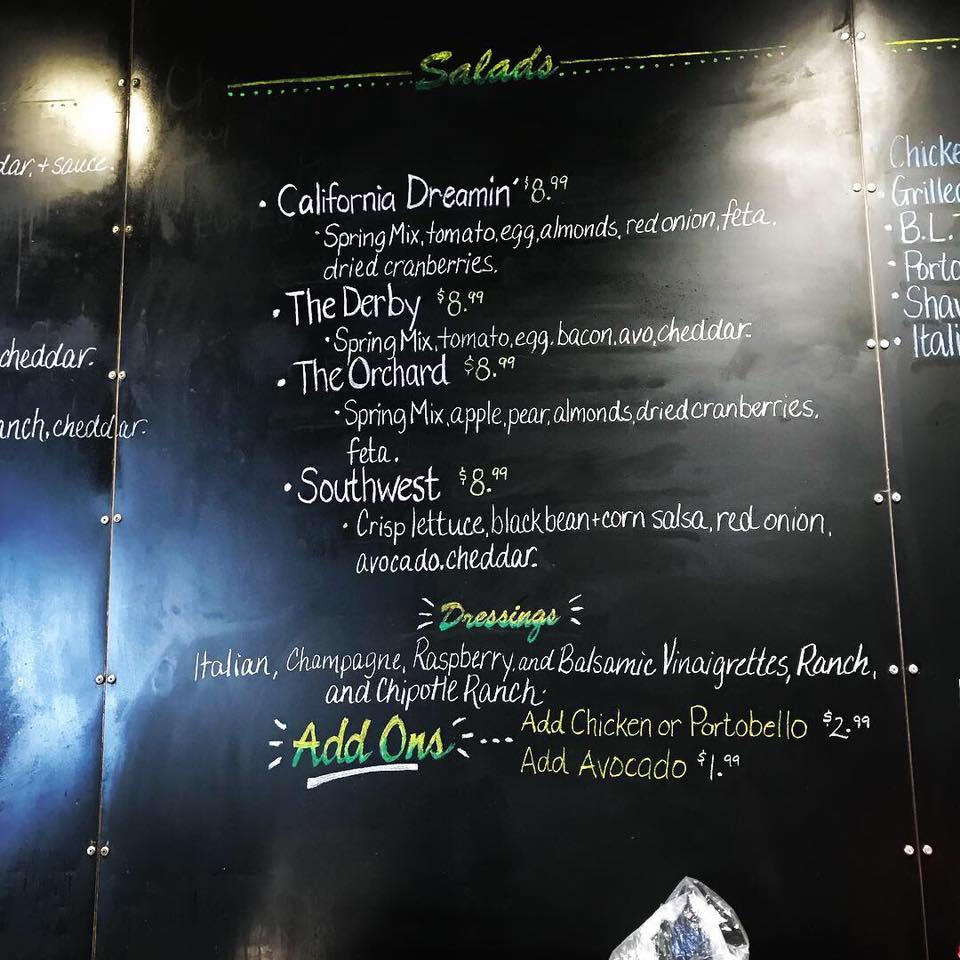 Salads
dar, + sauce.
cheddar.
anch, cheddar.
• California Dreamin' $8.99
• Spring Mix, tomato, egg, almonds, red onion, feta.
dried cranberries.
• The Derby $8.99
• Spring Mix, tomato, egg, bacon, avo, cheddar.
• The Orchard $8.99
• Spring Mix, apple, pear, almonds, dried cranberries,
feta.
• Southwest $8.99
• Crisp lettuce, black bean + corn salsa, red onion,
avocado, cheddar.
Dressings
Italian, Champagne, Raspberry, and Balsamic Vinaigrettes, Ranch,
and Chipotle Ranch.
Add Ons ... Add Chicken or Portobello $2.99
Add Avocado $1.99
Chicke
• Grilled
• B.L.T
• Porto
• Shav
• Itali